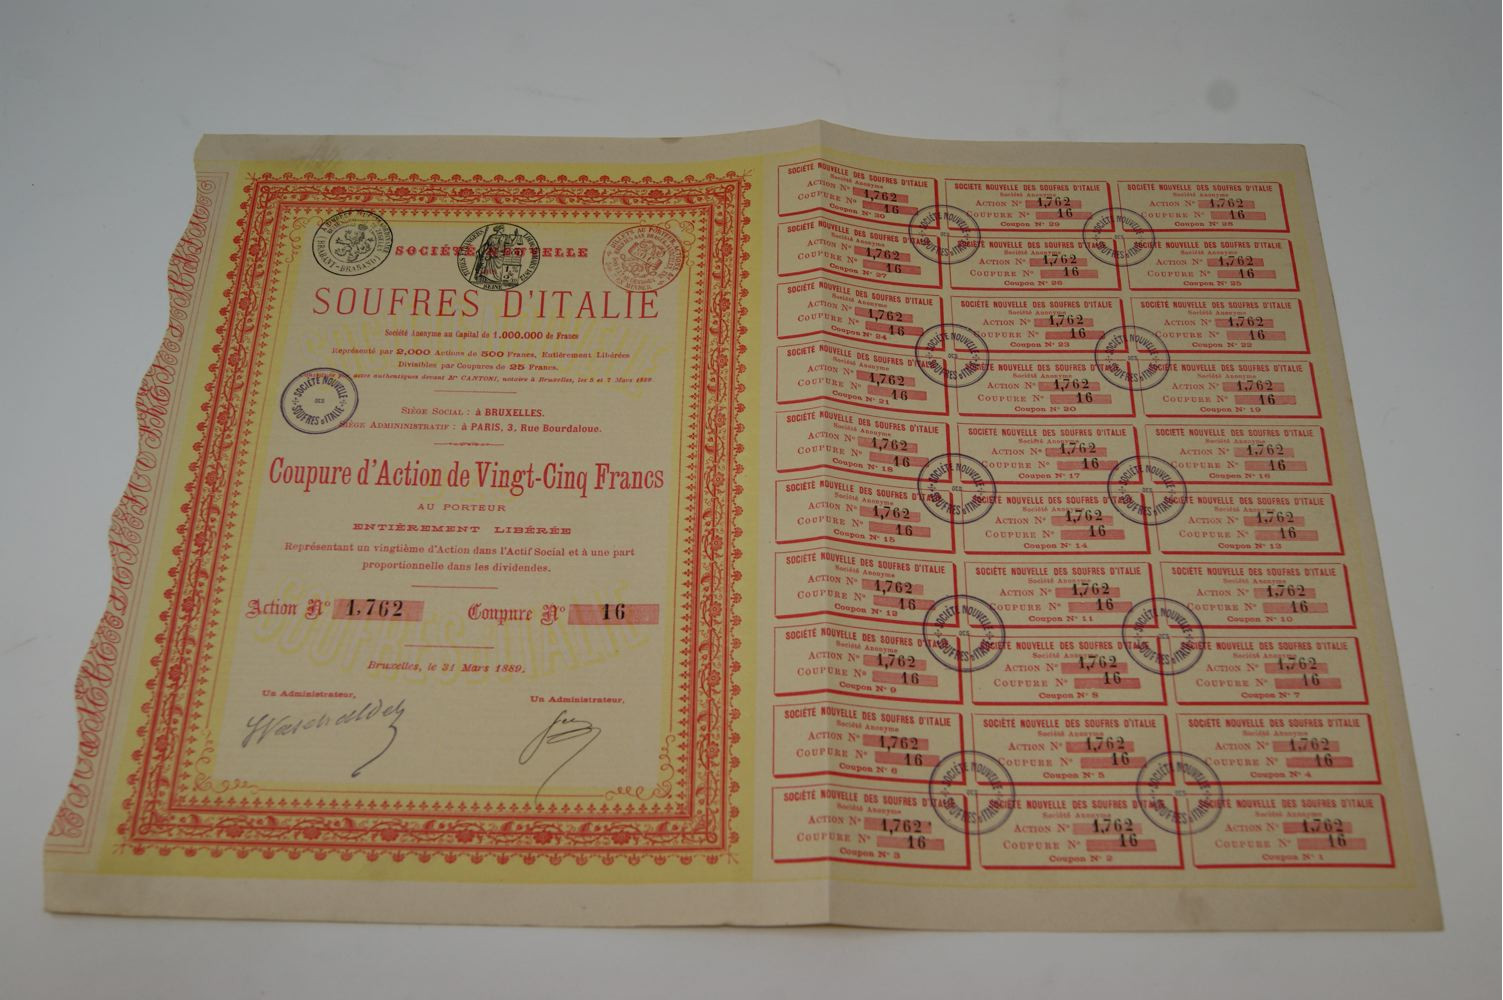 SOCIÉTÉ NOUVELLE
SOUFRES D'ITALIE
Société Anonyme au Capital de 1.000.000 de Francs
Représenté par 2,000 Actions de 500 Francs, Entièrement Libérées
Divisibles par Coupures de 25 Francs.
par actes authentiques devant Me CANTONI, notaire à Bruxelles, les 5 et 7 Mars 1889
SOCIÉTÉ NOUVELLE DES SOUFRES D'ITALIE
SIÈGE SOCIAL : à BRUXELLES.
SIÈGE ADMININISTRATIF : à PARIS, 3, Rue Bourdaloue.
Coupure d'Action de Vingt-Cinq Francs
AU PORTEUR
ENTIÈREMENT LIBÉRÉE
Représentant un vingtième d'Action dans l'Actif Social et à une part
proportionnelle dans les dividendes.
Action No 1,762 Coupure No 16
Bruxelles, le 31 Mars 1889.
Un Administrateur, Un Administrateur,
SOCIÉTÉ NOUVELLE DES SOUFRES D'ITALIE
Société Anonyme
ACTION No 1,762
COUPURE No 16
Coupon No 30
SOCIÉTÉ NOUVELLE DES SOUFRES D'ITALIE
Société Anonyme
ACTION No 1,762
COUPURE No 16
Coupon No 29
SOCIÉTÉ NOUVELLE DES SOUFRES D'ITALIE
Société Anonyme
ACTION No 1,762
COUPURE No 16
Coupon No 28
SOCIÉTÉ NOUVELLE DES SOUFRES D'ITALIE
Société Anonyme
ACTION No 1,762
COUPURE No 16
Coupon No 27
SOCIÉTÉ NOUVELLE DES SOUFRES D'ITALIE
Société Anonyme
ACTION No 1,762
COUPURE No 16
Coupon No 26
SOCIÉTÉ NOUVELLE DES SOUFRES D'ITALIE
Société Anonyme
ACTION No 1,762
COUPURE No 16
Coupon No 25
SOCIÉTÉ NOUVELLE DES SOUFRES D'ITALIE
Société Anonyme
ACTION No 1,762
COUPURE No 16
Coupon No 24
SOCIÉTÉ NOUVELLE DES SOUFRES D'ITALIE
Société Anonyme
ACTION No 1,762
COUPURE No 16
Coupon No 23
SOCIÉTÉ NOUVELLE DES SOUFRES D'ITALIE
Société Anonyme
ACTION No 1,762
COUPURE No 16
Coupon No 22
SOCIÉTÉ NOUVELLE DES SOUFRES D'ITALIE
Société Anonyme
ACTION No 1,762
COUPURE No 16
Coupon No 21
SOCIÉTÉ NOUVELLE DES SOUFRES D'ITALIE
Société Anonyme
ACTION No 1,762
COUPURE No 16
Coupon No 20
SOCIÉTÉ NOUVELLE DES SOUFRES D'ITALIE
Société Anonyme
ACTION No 1,762
COUPURE No 16
Coupon No 19
SOCIÉTÉ NOUVELLE DES SOUFRES D'ITALIE
Société Anonyme
ACTION No 1,762
COUPURE No 16
Coupon No 18
SOCIÉTÉ NOUVELLE DES SOUFRES D'ITALIE
Société Anonyme
ACTION No 1,762
COUPURE No 16
Coupon No 17
SOCIÉTÉ NOUVELLE DES SOUFRES D'ITALIE
Société Anonyme
ACTION No 1,762
COUPURE No 16
Coupon No 16
SOCIÉTÉ NOUVELLE DES SOUFRES D'ITALIE
Société Anonyme
ACTION No 1,762
COUPURE No 16
Coupon No 15
SOCIÉTÉ NOUVELLE DES SOUFRES D'ITALIE
Société Anonyme
ACTION No 1,762
COUPURE No 16
Coupon No 14
SOCIÉTÉ NOUVELLE DES SOUFRES D'ITALIE
Société Anonyme
ACTION No 1,762
COUPURE No 16
Coupon No 13
SOCIÉTÉ NOUVELLE DES SOUFRES D'ITALIE
Société Anonyme
ACTION No 1,762
COUPURE No 16
Coupon No 12
SOCIÉTÉ NOUVELLE DES SOUFRES D'ITALIE
Société Anonyme
ACTION No 1,762
COUPURE No 16
Coupon No 11
SOCIÉTÉ NOUVELLE DES SOUFRES D'ITALIE
Société Anonyme
ACTION No 1,762
COUPURE No 16
Coupon No 10
SOCIÉTÉ NOUVELLE DES SOUFRES D'ITALIE
Société Anonyme
ACTION No 1,762
COUPURE No 16
Coupon No 9
SOCIÉTÉ NOUVELLE DES SOUFRES D'ITALIE
Société Anonyme
ACTION No 1,762
COUPURE No 16
Coupon No 8
SOCIÉTÉ NOUVELLE DES SOUFRES D'ITALIE
Société Anonyme
ACTION No 1,762
COUPURE No 16
Coupon No 7
SOCIÉTÉ NOUVELLE DES SOUFRES D'ITALIE
Société Anonyme
ACTION No 1,762
COUPURE No 16
Coupon No 6
SOCIÉTÉ NOUVELLE DES SOUFRES D'ITALIE
Société Anonyme
ACTION No 1,762
COUPURE No 16
Coupon No 5
SOCIÉTÉ NOUVELLE DES SOUFRES D'ITALIE
Société Anonyme
ACTION No 1,762
COUPURE No 16
Coupon No 4
SOCIÉTÉ NOUVELLE DES SOUFRES D'ITALIE
Société Anonyme
ACTION No 1,762
COUPURE No 16
Coupon No 3
SOCIÉTÉ NOUVELLE DES SOUFRES D'ITALIE
Société Anonyme
ACTION No 1,762
COUPURE No 16
Coupon No 2
SOCIÉTÉ NOUVELLE DES SOUFRES D'ITALIE
Société Anonyme
ACTION No 1,762
COUPURE No 16
Coupon No 1